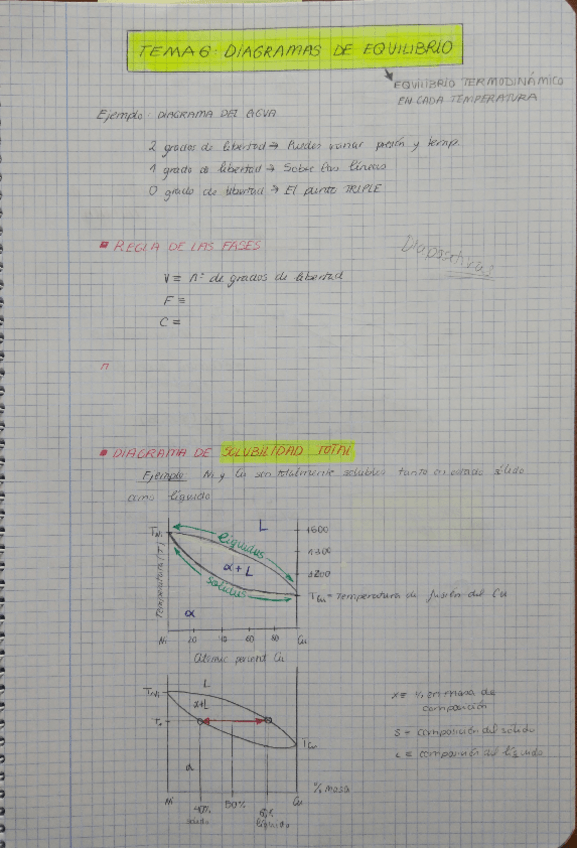 TEMA 6: DIAGRAMAS DE EQUILIBRIO
EQUILIBRIO TERMODINÁMICO
EN CADA TEMPERATURA
Ejemplo: DIAGRAMA DEL AGUA
2 grados de libertad → Puedes variar presión y temp.
1 grado de libertad → Sobre las líneas
0 grado de libertad → El punto TRIPLE
REGLA DE LAS FASES
Diapositivas
V ≡ nº de grados de libertad
F ≡
C =
DIAGRAMA DE SOLUBILIDAD TOTAL
Ejemplo: Ni y Cu son totalmente solubles tanto en estado sólido
como líquido
L
T Ni
líquidus
1500
1300
α + L
1200
solidus
T Cu = Temperatura de fusión del Cu
Temperatura (T)
α
Ni 20 40 60 80 Cu
Atomic percent Cu
L
T Ni
α+L
T Cu
α
x ≡ % en masa de
composición
S = composición del sólido
L = composición del líquido
Ni Cu
% masa
40% 50%
sólido líquido